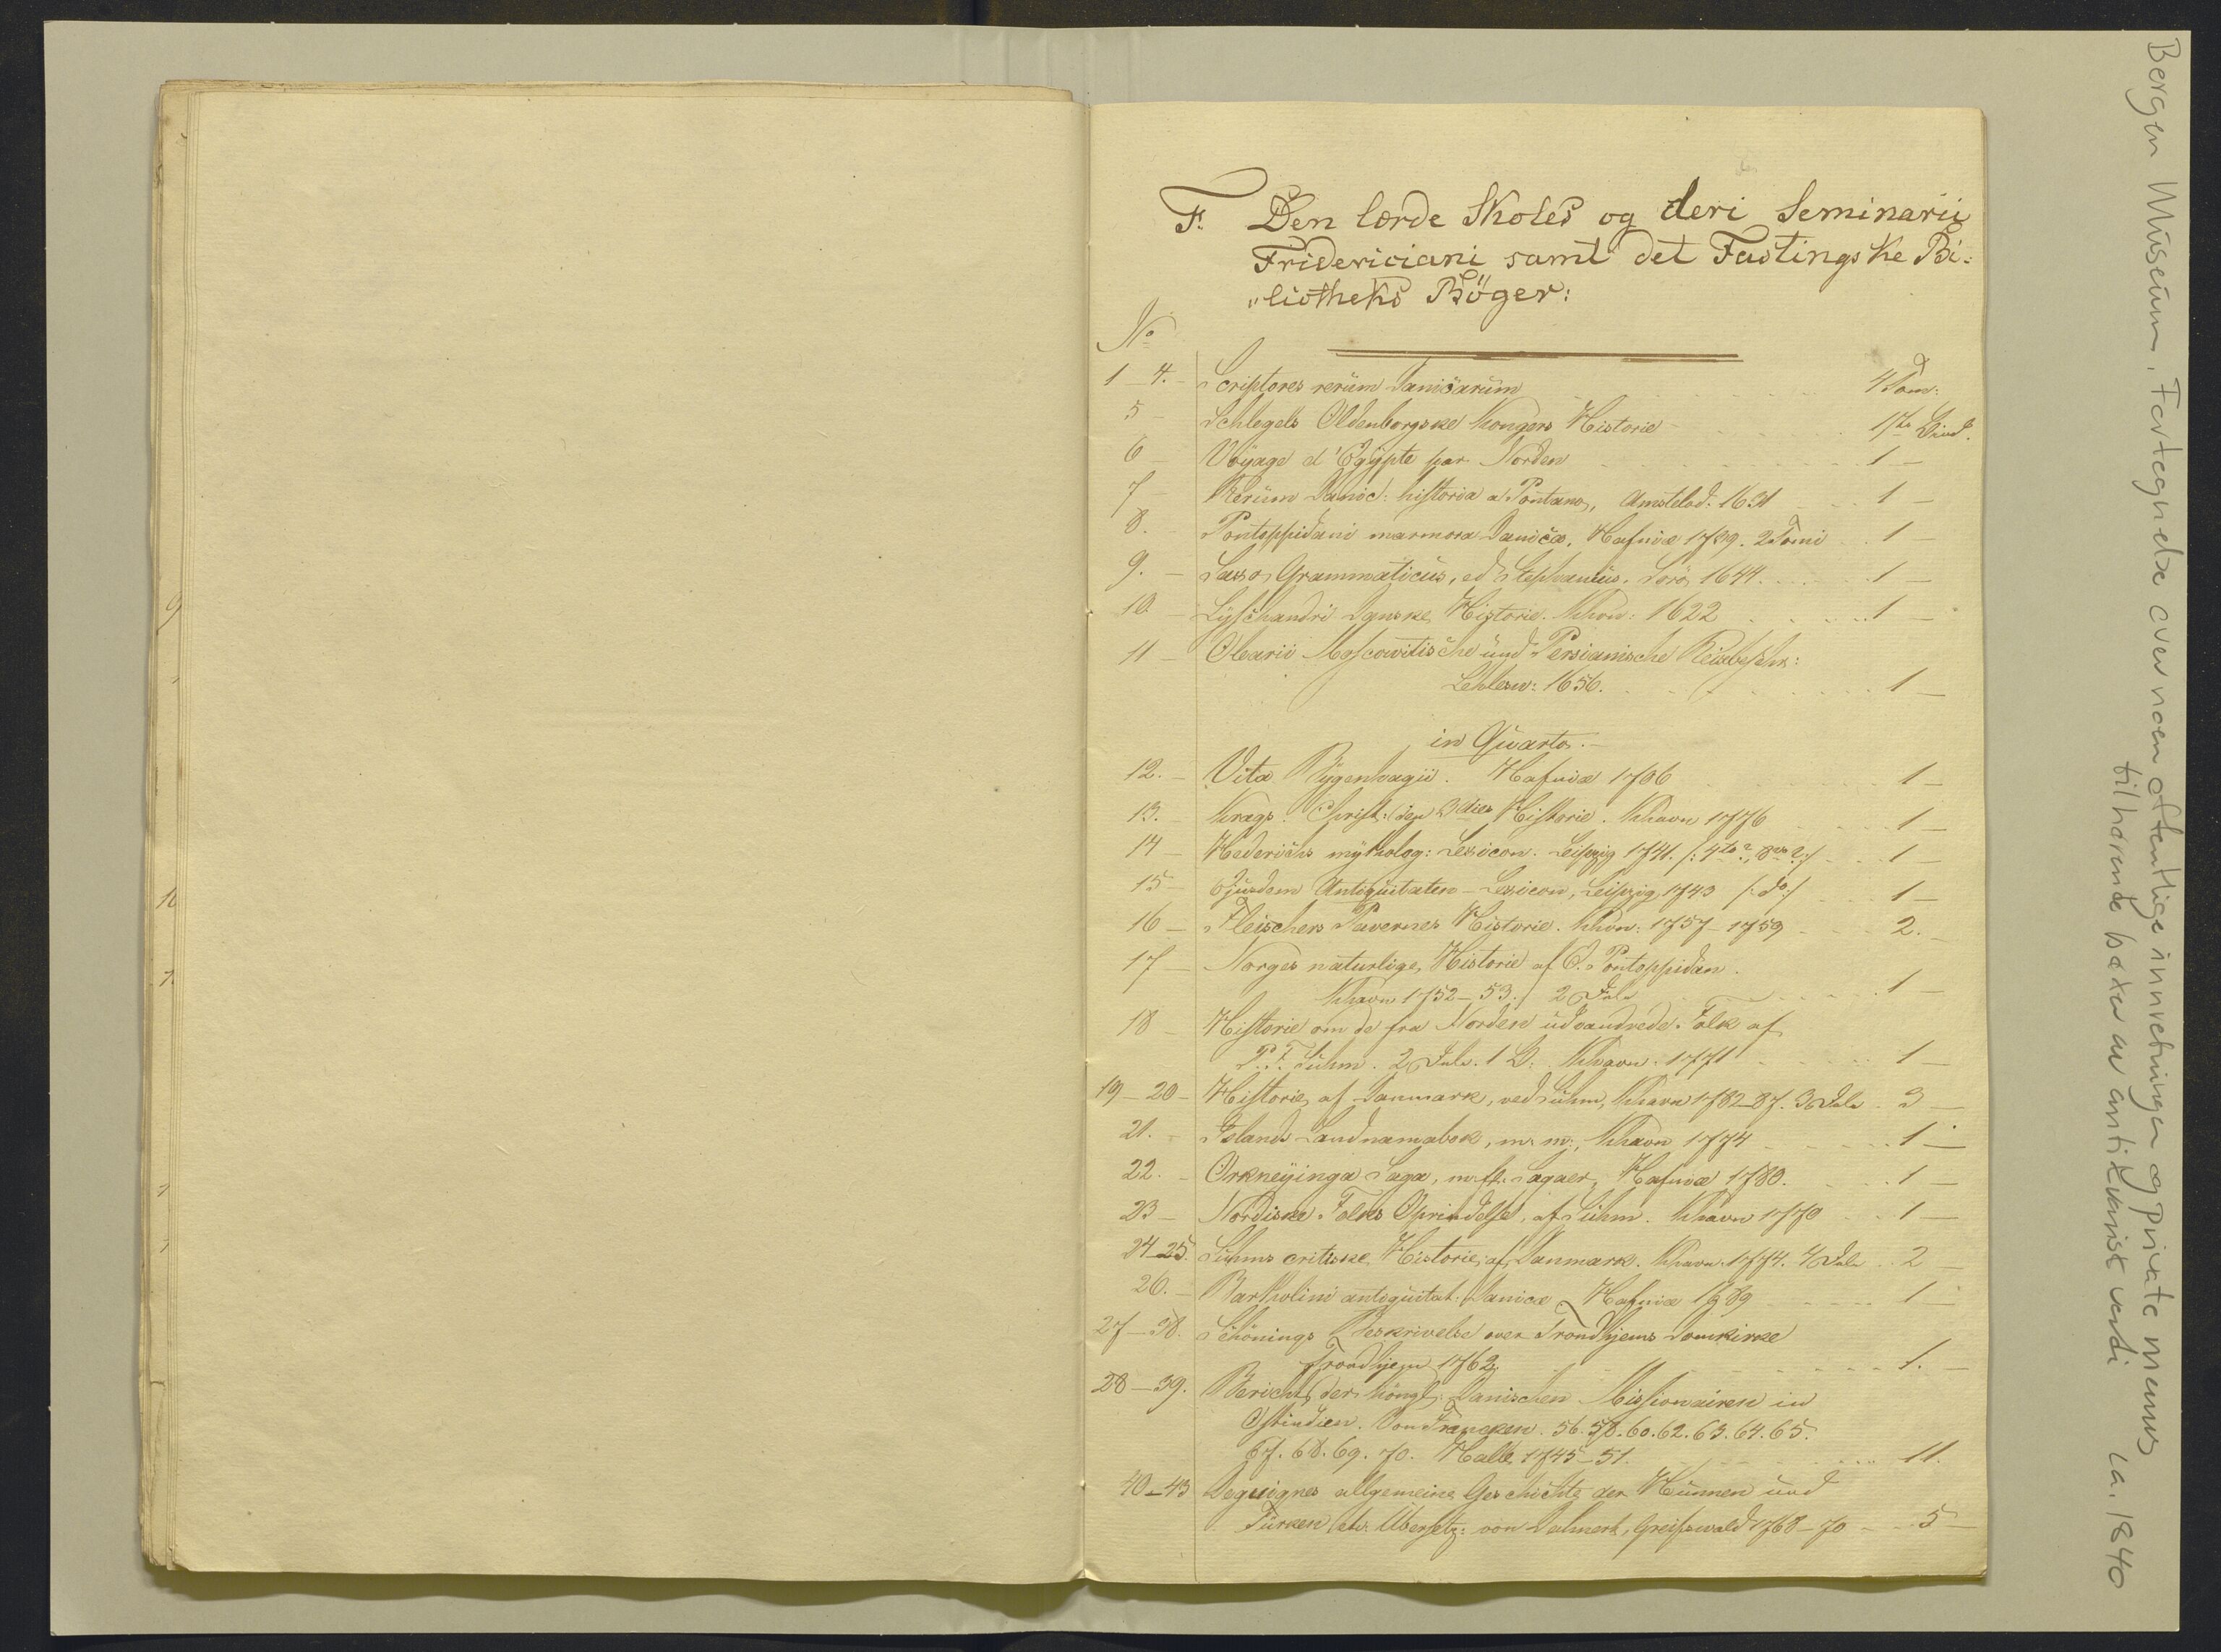 F. Den lærde Skoles og deri Seminarii
Fridericiani samt det Fastingske Bi-
"liotheks Böger:
No
1-4. Scriptores rerum Danicarum 4 Tom:
5 Schlegels Oldenborgske Kongers Historie 1ste Bind.
6 Voÿage d'Egÿpte par Norden 1 —
7 Rerum Danic: historia a Pontano, Amstelod: 1631 1 —
8. Pontoppidani marmora Danica, Hafniæ 1739. 2 Tomi 1 —
9. Saxo Grammaticus, ed Stephanius, Sorö 1644. 1 —
10. Lyschandri Danske Historie. Khvn: 1622 1 —
11 Olearii Moscowitische und Persianische Reisebeschr:
Schlesw: 1656. 1 —
in Qvarto.
12. Vita Bÿgenhagii. Hafniæ 1706 1 —
13. Krags Christ: den 3dies Historie. Khavn 1776 1 —
14 Hederichs mÿtholog: Lexicon. Leipzig 1741. /: 4to?, 8vo?:/ 1 —
15 Ejusdem Antiquitaten-Lexicon, Leipzig 1743 /: do:/ 1 —
16 Fleischers Natur Historie. Khvn: 1757-1759 2. —
17 Norges naturlige Historie af E. Pontoppidan.
Khavn 1752-53. 2 Dele 1 —
18 Historie om de fra Norden udvandrede Folk af
P. F. Suhm. 2 Dele. 1 B: Khavn. 1771 1 —
19-20 Historie af Danmark, ved Suhm, Khavn 1782-87. 3 Dele 3 —
21. Islands Landnamabok, m. m:, Khavn 1774 1 —
22. Orkneÿinga Saga, m. fl. Sagaer, Hafniæ 1780. 1 —
23 Nordiske Folks Oprindelse, af Suhm. Khavn 1770 1 —
24-25. Suhms critiske Historie af Danmark. Khavn. 1774. 4 Dele 2 —
26. Bartholini antiquitat: Danicæ Hafniæ 1689 1 —
27-38. Schönings Beskrivelse over Trondhjems Domkirke
Trondhjem 1762. 1. —
28-39. Bericht der Köngl. Danischen Missionairen in
Ostindien. Von Francken. 56. 58. 60. 62. 63. 64. 65.
67. 68. 69. 70. Halle 1745-51. 11.
40-43 Deguignes allgemeine Geschichte der Hunnen und
Türken etc. Übersetz: von Dahnert, Greifswald 1768-70 5 —
Bergen Museum. Fortegnelse over noen offentlige innretninger og private menns
tilhørende bøker av antikvarisk verdi ca. 1840